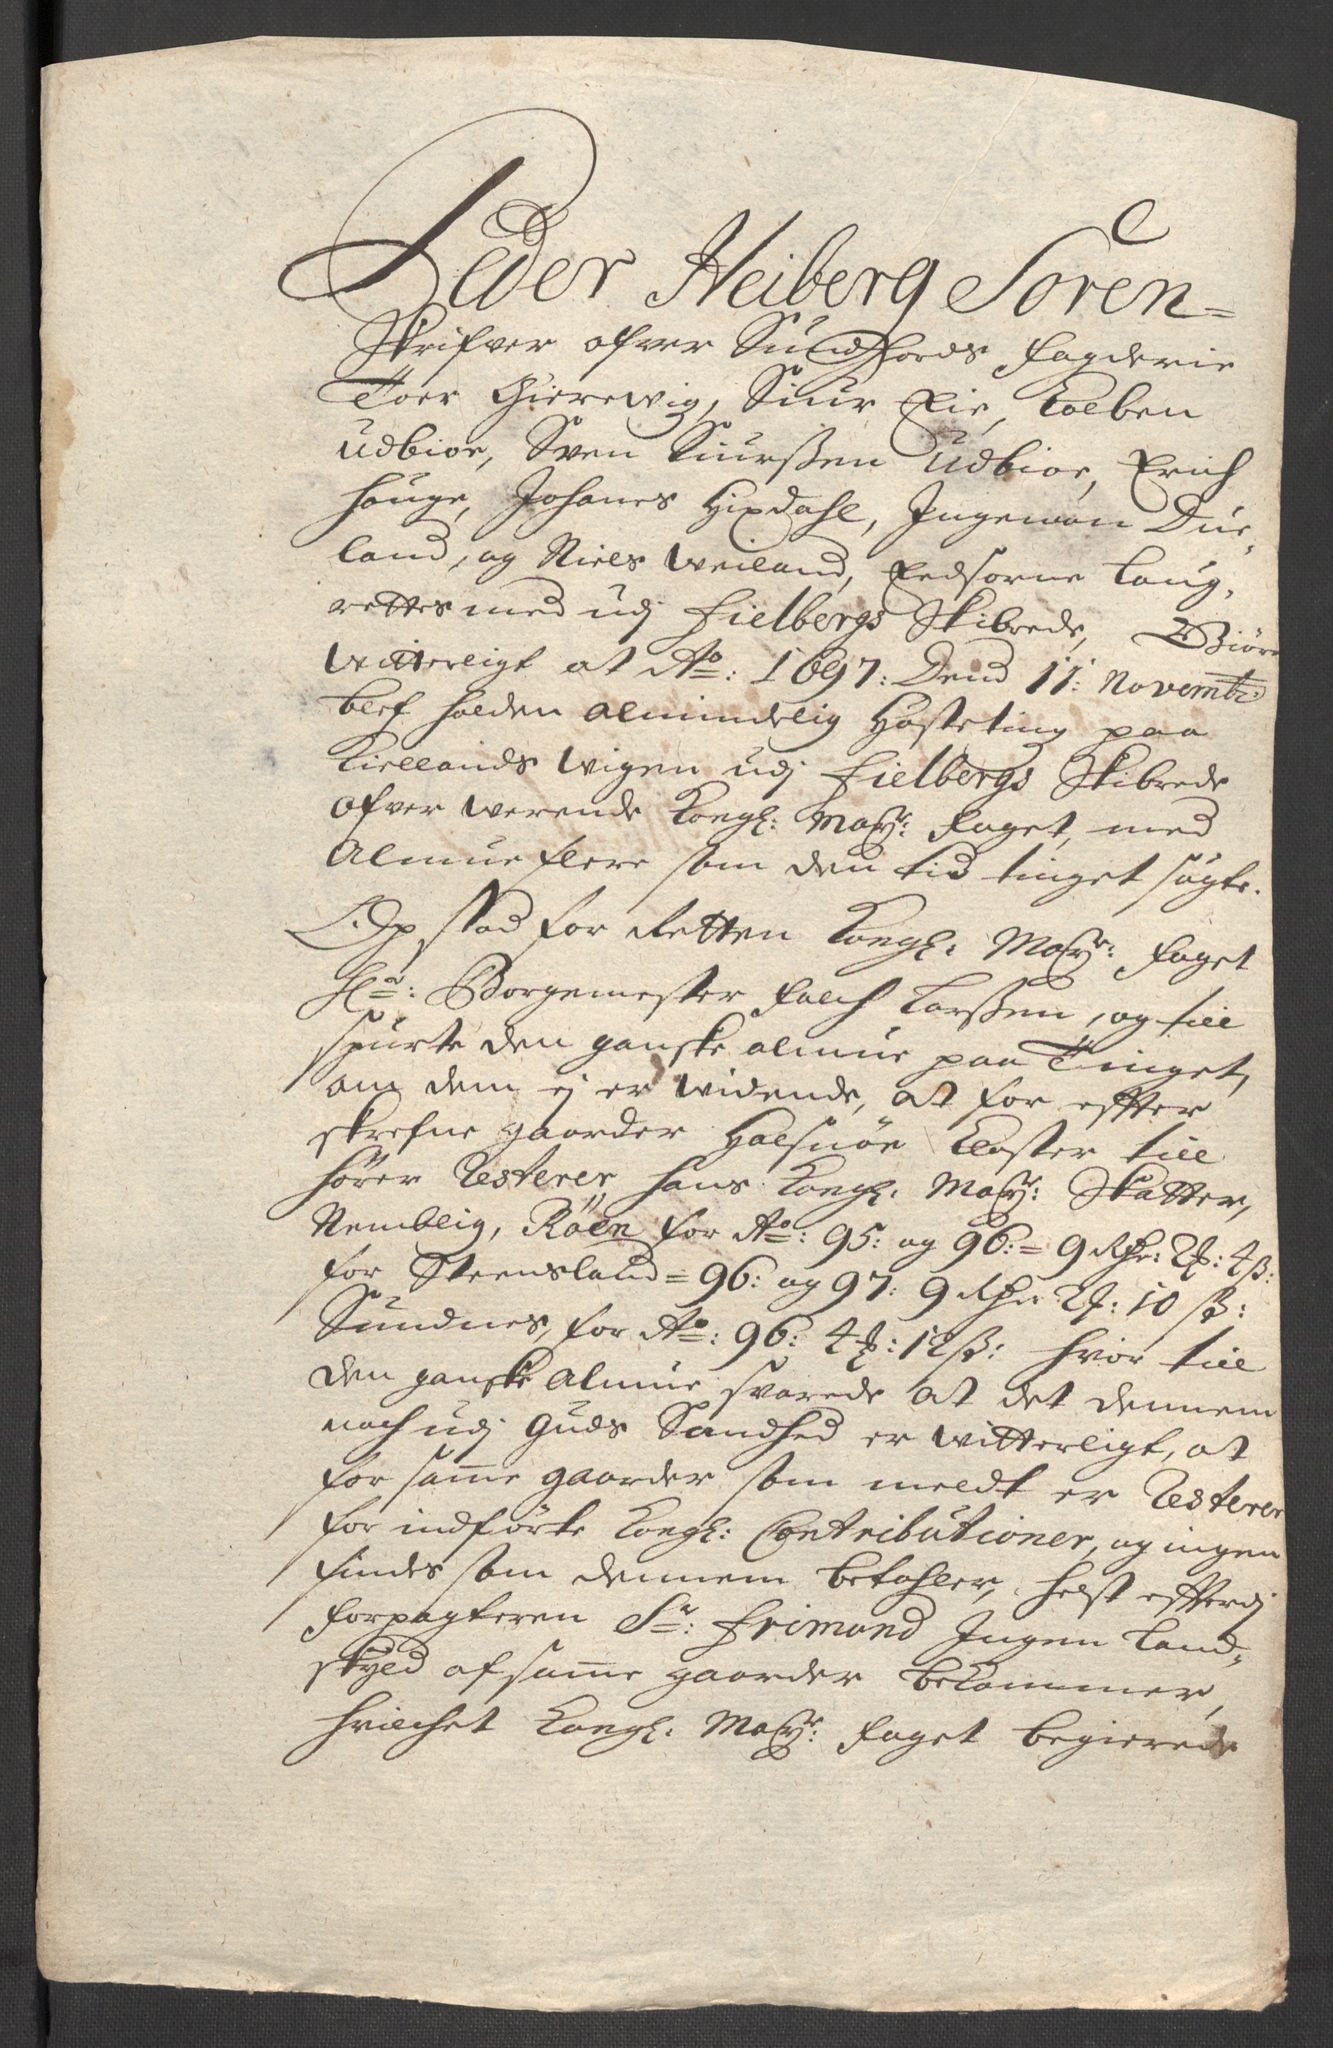 Peder Heiberg Soren=
Skrifver ofver Sundhords fogderie
Toer Gierewig, Siur Eie, Colben
Udbioe, Sven Siurssen Udbioe, Erich
Houge, Johanes Hixdahl, Ingemon Due,
land, og Niels Weiland, Eedsorne Laug,
rettes med udj Fielbergs Skibrede, Giöre
Witterligt at Ao: 1697: Dend 11: Novembr:
blef holden almindelig Hösteting paa
Kiellands Wigen udj Fielbergs Skibrede
ofver werende Kongl: May:tt: Foget, med
Almue flere som den tid tinget søgte.
Op stod for Retten Kongl: May:tt: Foget
Hr: Borgemester Falch Larssen, og till
spurte den ganske almue paa Tinget,
om dem ej er widende, at for effter
skrefne gaarder Halsnöe Closter till
hörer Resterer hans Kongl: May:tt: Skatter,
Nemblig, Röen for Ao: 95: og 96: = 9 Rdr: 2 : 4 s:
for Steensland = 96: og 97: 9 Rdr: 2 : 10 s:
Sundnes, for Ao: 96: 4 : 12 s: hvor till
den ganske almue svarede at det dennem
noch udj Guds Sandhed er witterligt, at
for samme gaarder som meldt er Resterer
for indförte Kongl: Contributioner, og ingen
findes som dennem betahler, helst effterdj
forpagteren Sr: Frimand Ingen Land=
skyld af samme gaarder bekommer,
hvilchet Kongl: May:tt: Foget begierede